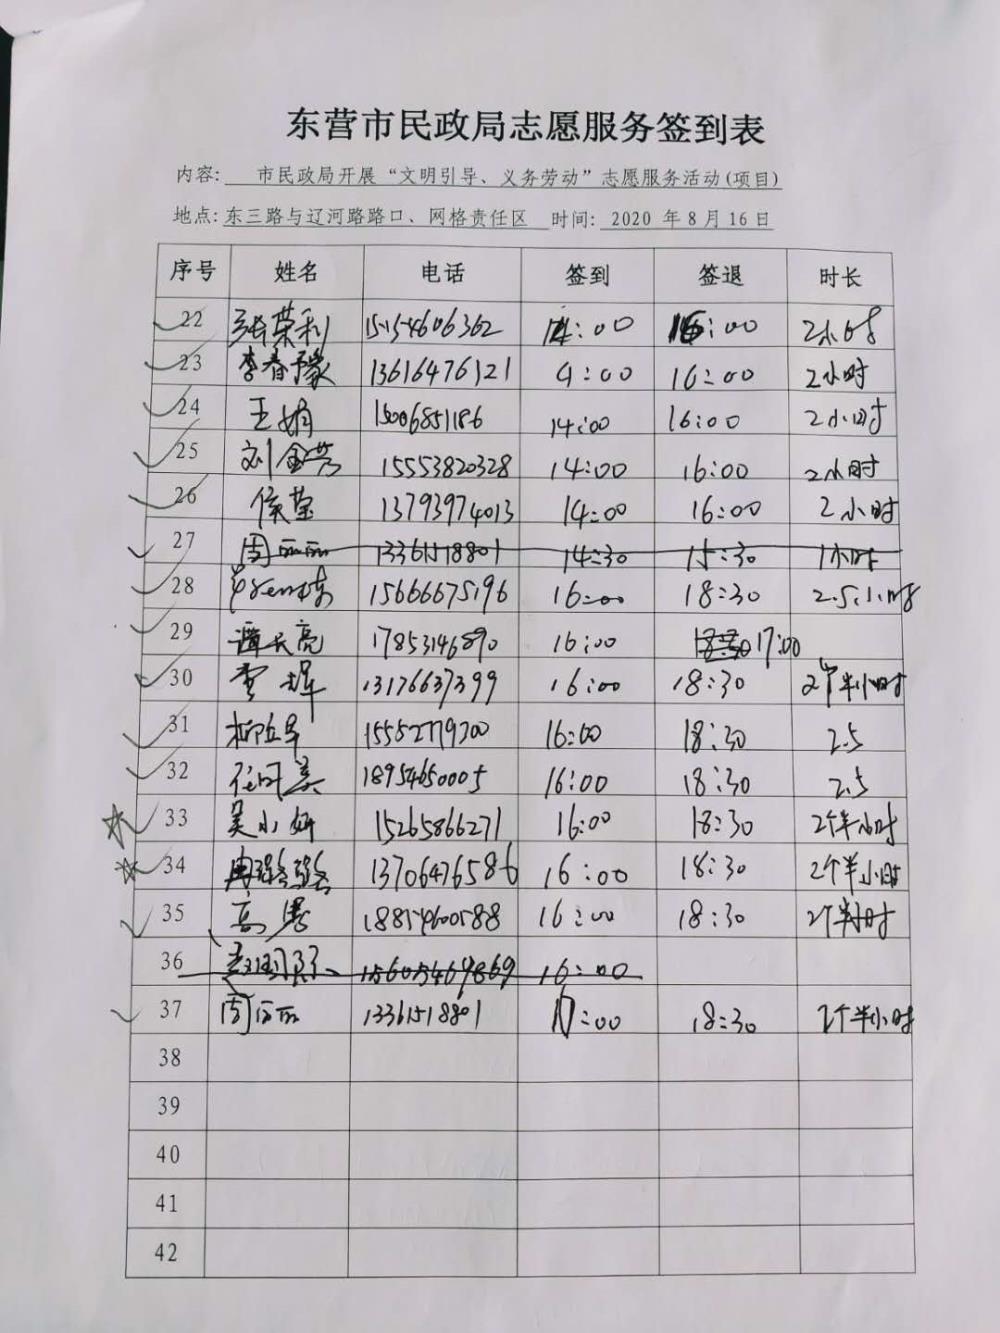 东营市民政局志愿服务签到表
内容: 市民政局开展“文明引导、义务劳动”志愿服务活动(项目)
地点: 东三路与辽河路路口、网格责任区 时间: 2020 年 8 月 16 日
序号 姓名 电话 签到 签退 时长
22 张荣利 15154606362 14:00 16:00 2小时
23 李春豫 13616476121 9:00 16:00 2小时
24 王娟 15006851186 14:00 16:00 2小时
25 刘金芳 15553820328 14:00 16:00 2小时
26 侯莹 13793974013 14:00 16:00 2小时
27 周丽丽 13361518801 14:30 15:30 1小时
28 15666675196 16:00 18:30 2.5小时
29 谭长亮 17853146890 16:00 17:00
30 贾辉 13176637399 16:00 18:30 2个半小时
31 15552779300 16:00 18:30 2.5
32 任风美 18954650005 16:00 18:30 2.5
33 吴小妍 15265866271 16:00 18:30 2个半小时
34 冉璐璐 13706476586 16:00 18:30 2个半小时
35 高 18854600588 16:00 18:30 2个半小时
36 15605469869 16:00
37 周丽丽 13361518801 :00 18:30 2个半小时
38
39
40
41
42